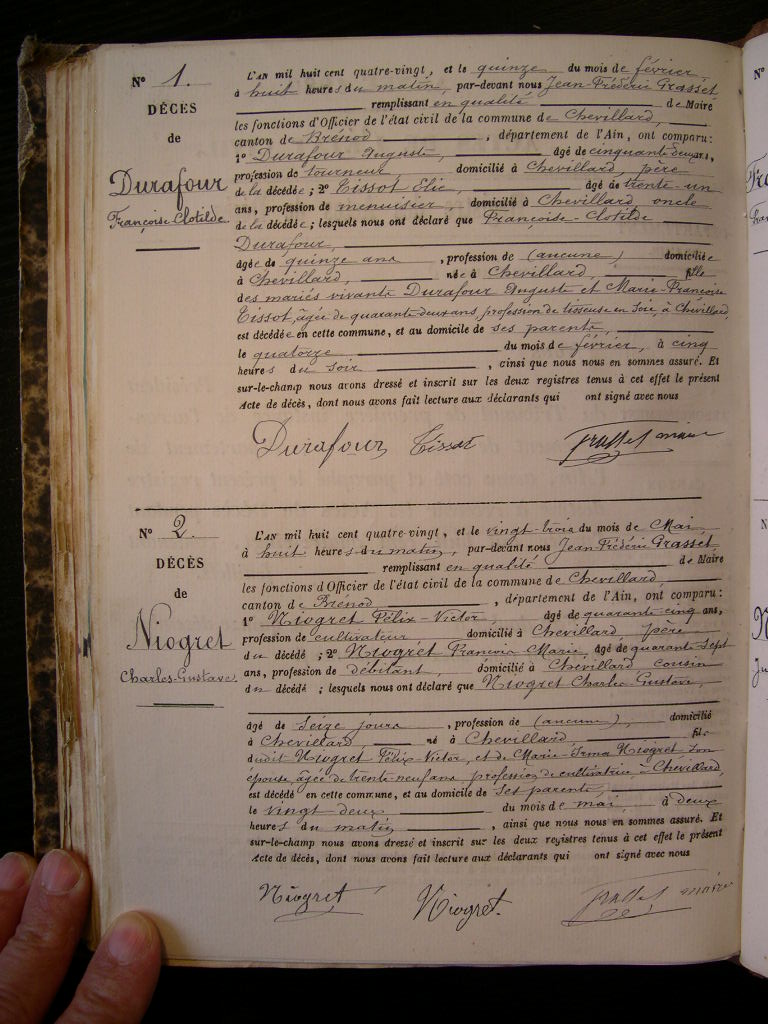 N° 1.
DÉCÈS
de
Durafour
Françoise Clotilde
L'AN mil huit cent quatre-vingt, et le quinze du mois de février
à huit heures du matin, par-devant nous Jean-Frédéric Grasset
remplissant en qualité de Maire
les fonctions d'Officier de l'état civil de la commune de Chevillard,
canton de Brénod, département de l'Ain, ont comparu:
1° Durafour Auguste, âgé de cinquante deux ans,
profession de tourneur, domicilié à Chevillard, père
de la décédée; 2° Tissot Elie, âgé de trente-un
ans, profession de menuisier, domicilié à Chevillard oncle
de la décédée; lesquels nous ont déclaré que Françoise-Clotilde
Durafour,
âgée de quinze ans, profession de (aucune) domiciliée
à Chevillard, née à Chevillard, fille
des mariés vivants Durafour Auguste et Marie-Françoise
Tissot, âgée de quarante deux ans, profession de tisseuse en soie, à Chevillard,
est décédée en cette commune, et au domicile de ses parents,
le quatorze du mois de février, à cinq
heures du soir, ainsi que nous nous en sommes assuré. Et
sur-le-champ nous avons dressé et inscrit sur les deux registres tenus à cet effet le présent
Acte de décès, dont nous avons fait lecture aux déclarants qui ont signé avec nous
Durafour Tissot Grasset maire
N° 2.
DÉCÈS
de
Niogret
Charles-Gustave
L'AN mil huit cent quatre-vingt, et le vingt-trois du mois de Mai
à huit heures du matin, par-devant nous Jean Frédéric Grasset
remplissant en qualité de Maire
les fonctions d'Officier de l'état civil de la commune de Chevillard,
canton de Brénod, département de l'Ain, ont comparu:
1° Niogret Félix-Victor, âgé de quarante cinq ans,
profession de cultivateur, domicilié à Chevillard, père
du décédé; 2° Niogret François Marie, âgé de quarante sept
ans, profession de débitant, domicilié à Chevillard cousin
du décédé; lesquels nous ont déclaré que Niogret Charles Gustave,
âgé de seize jours, profession de (aucune), domicilié
à Chevillard, né à Chevillard, fils
dudit Niogret Félix-Victor, et de Marie-Irma Niogret son
épouse, âgée de trente neuf ans, profession de cultivatrice à Chevillard,
est décédé en cette commune, et au domicile de ses parents,
le vingt deux du mois de mai, à deux
heures du matin, ainsi que nous nous en sommes assuré. Et
sur-le-champ nous avons dressé et inscrit sur les deux registres tenus à cet effet le présent
Acte de décès, dont nous avons fait lecture aux déclarants qui ont signé avec nous
Niogret Niogret. Grasset maire